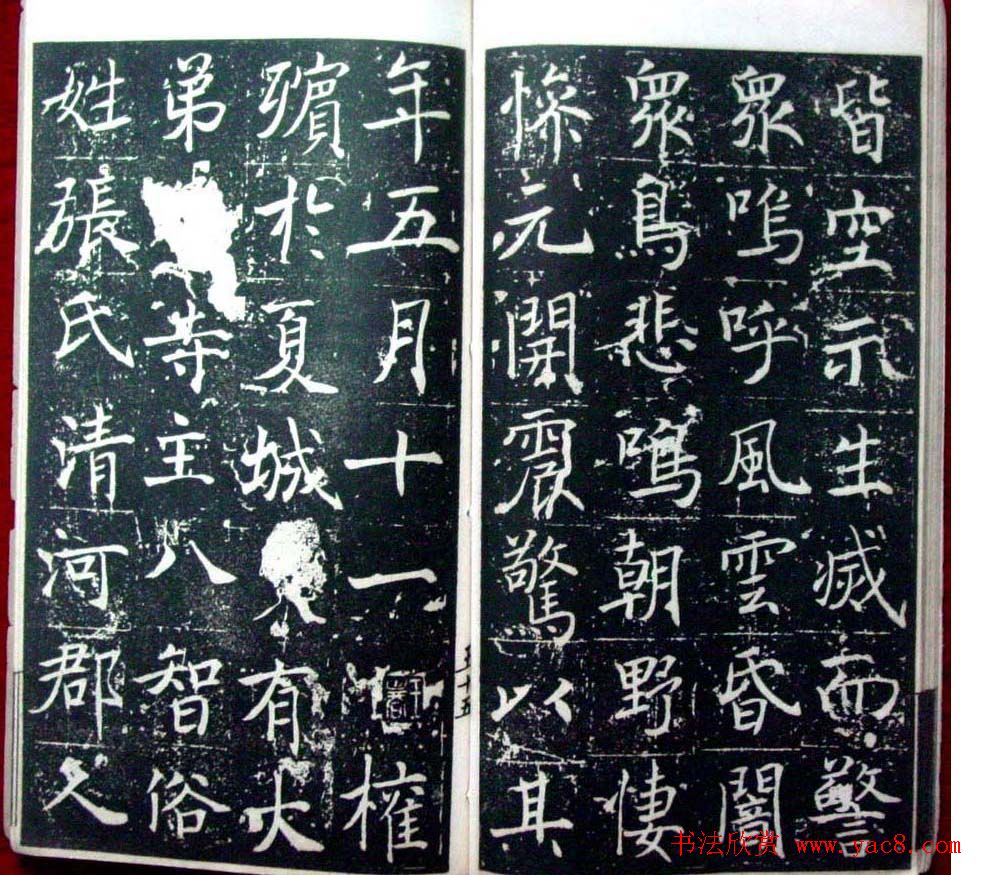 皆空示生滅而警
眾嗚呼風雲昏闇
眾鳥悲鳴朝野悽
慘元開震驚以其
年五月十一權
殯於夏城有大
弟寺主八智俗
姓張氏清河郡久
书法欣赏 www.yac8.com